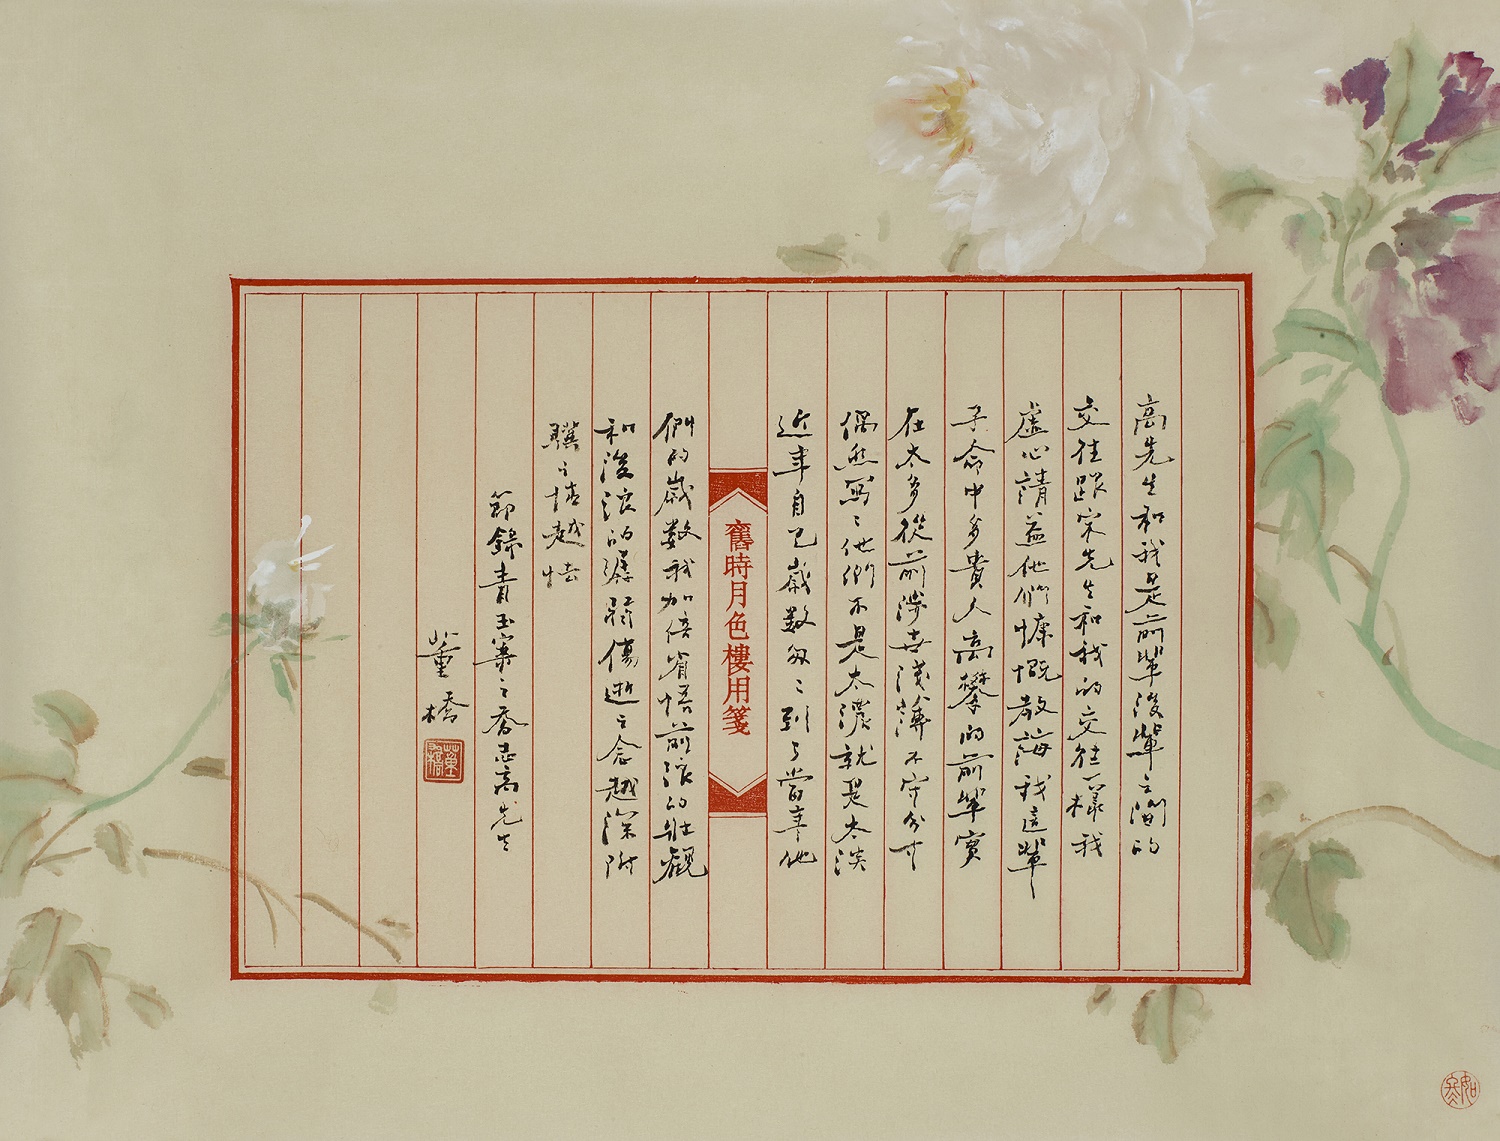 高先生和我是前輩後輩之間的
交往跟宋先生和我的交往一樣我
虛心請益他們慷慨教誨我這輩
子命中多貴人高攀的前輩實
在太多從前涉世淺薄不守分寸
偶然寫寫他們不是太濃就是太淡
近年自己歲數匆匆到了當年他
舊時月色樓用箋
們的歲數我加倍省悟前浪的壯觀
和後浪的孱弱傷逝之念越深附
驥之情越怯
節錄青玉案之喬志高先生
董橋
董橋